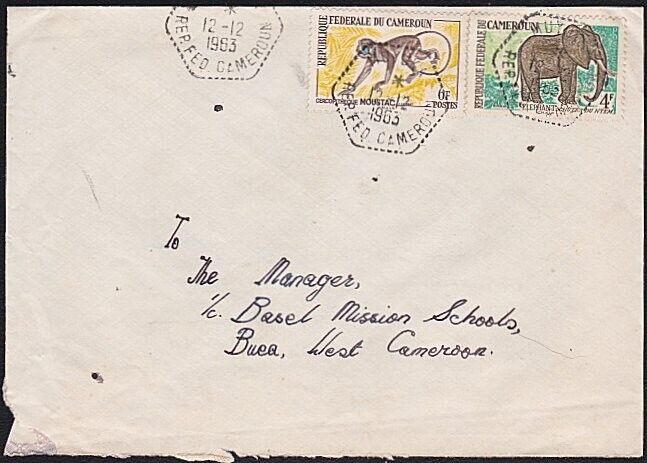 12-12
1963
REP. FED. CAMEROUN
REPUBLIQUE FEDERALE DU CAMEROUN
CERCOPITHEQUE MOUSTAC
6F
POSTES
12-12
1963
REP. FED. CAMEROUN
REPUBLIQUE FEDERALE DU CAMEROUN
ELEPHANT
4F
To
The Manager,
i/c. Basel Mission Schools,
Buea, West Cameroon.